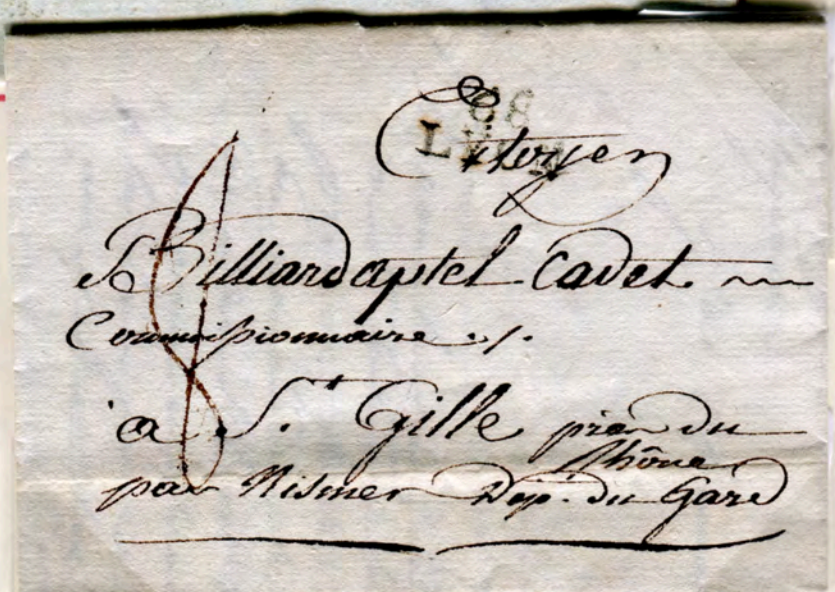 68
LYON
Citoyen
Billiard aptel Cadet
Commissionnaire
a S.t Gille pres du
Rhône
par Nismes Dep. du Gard